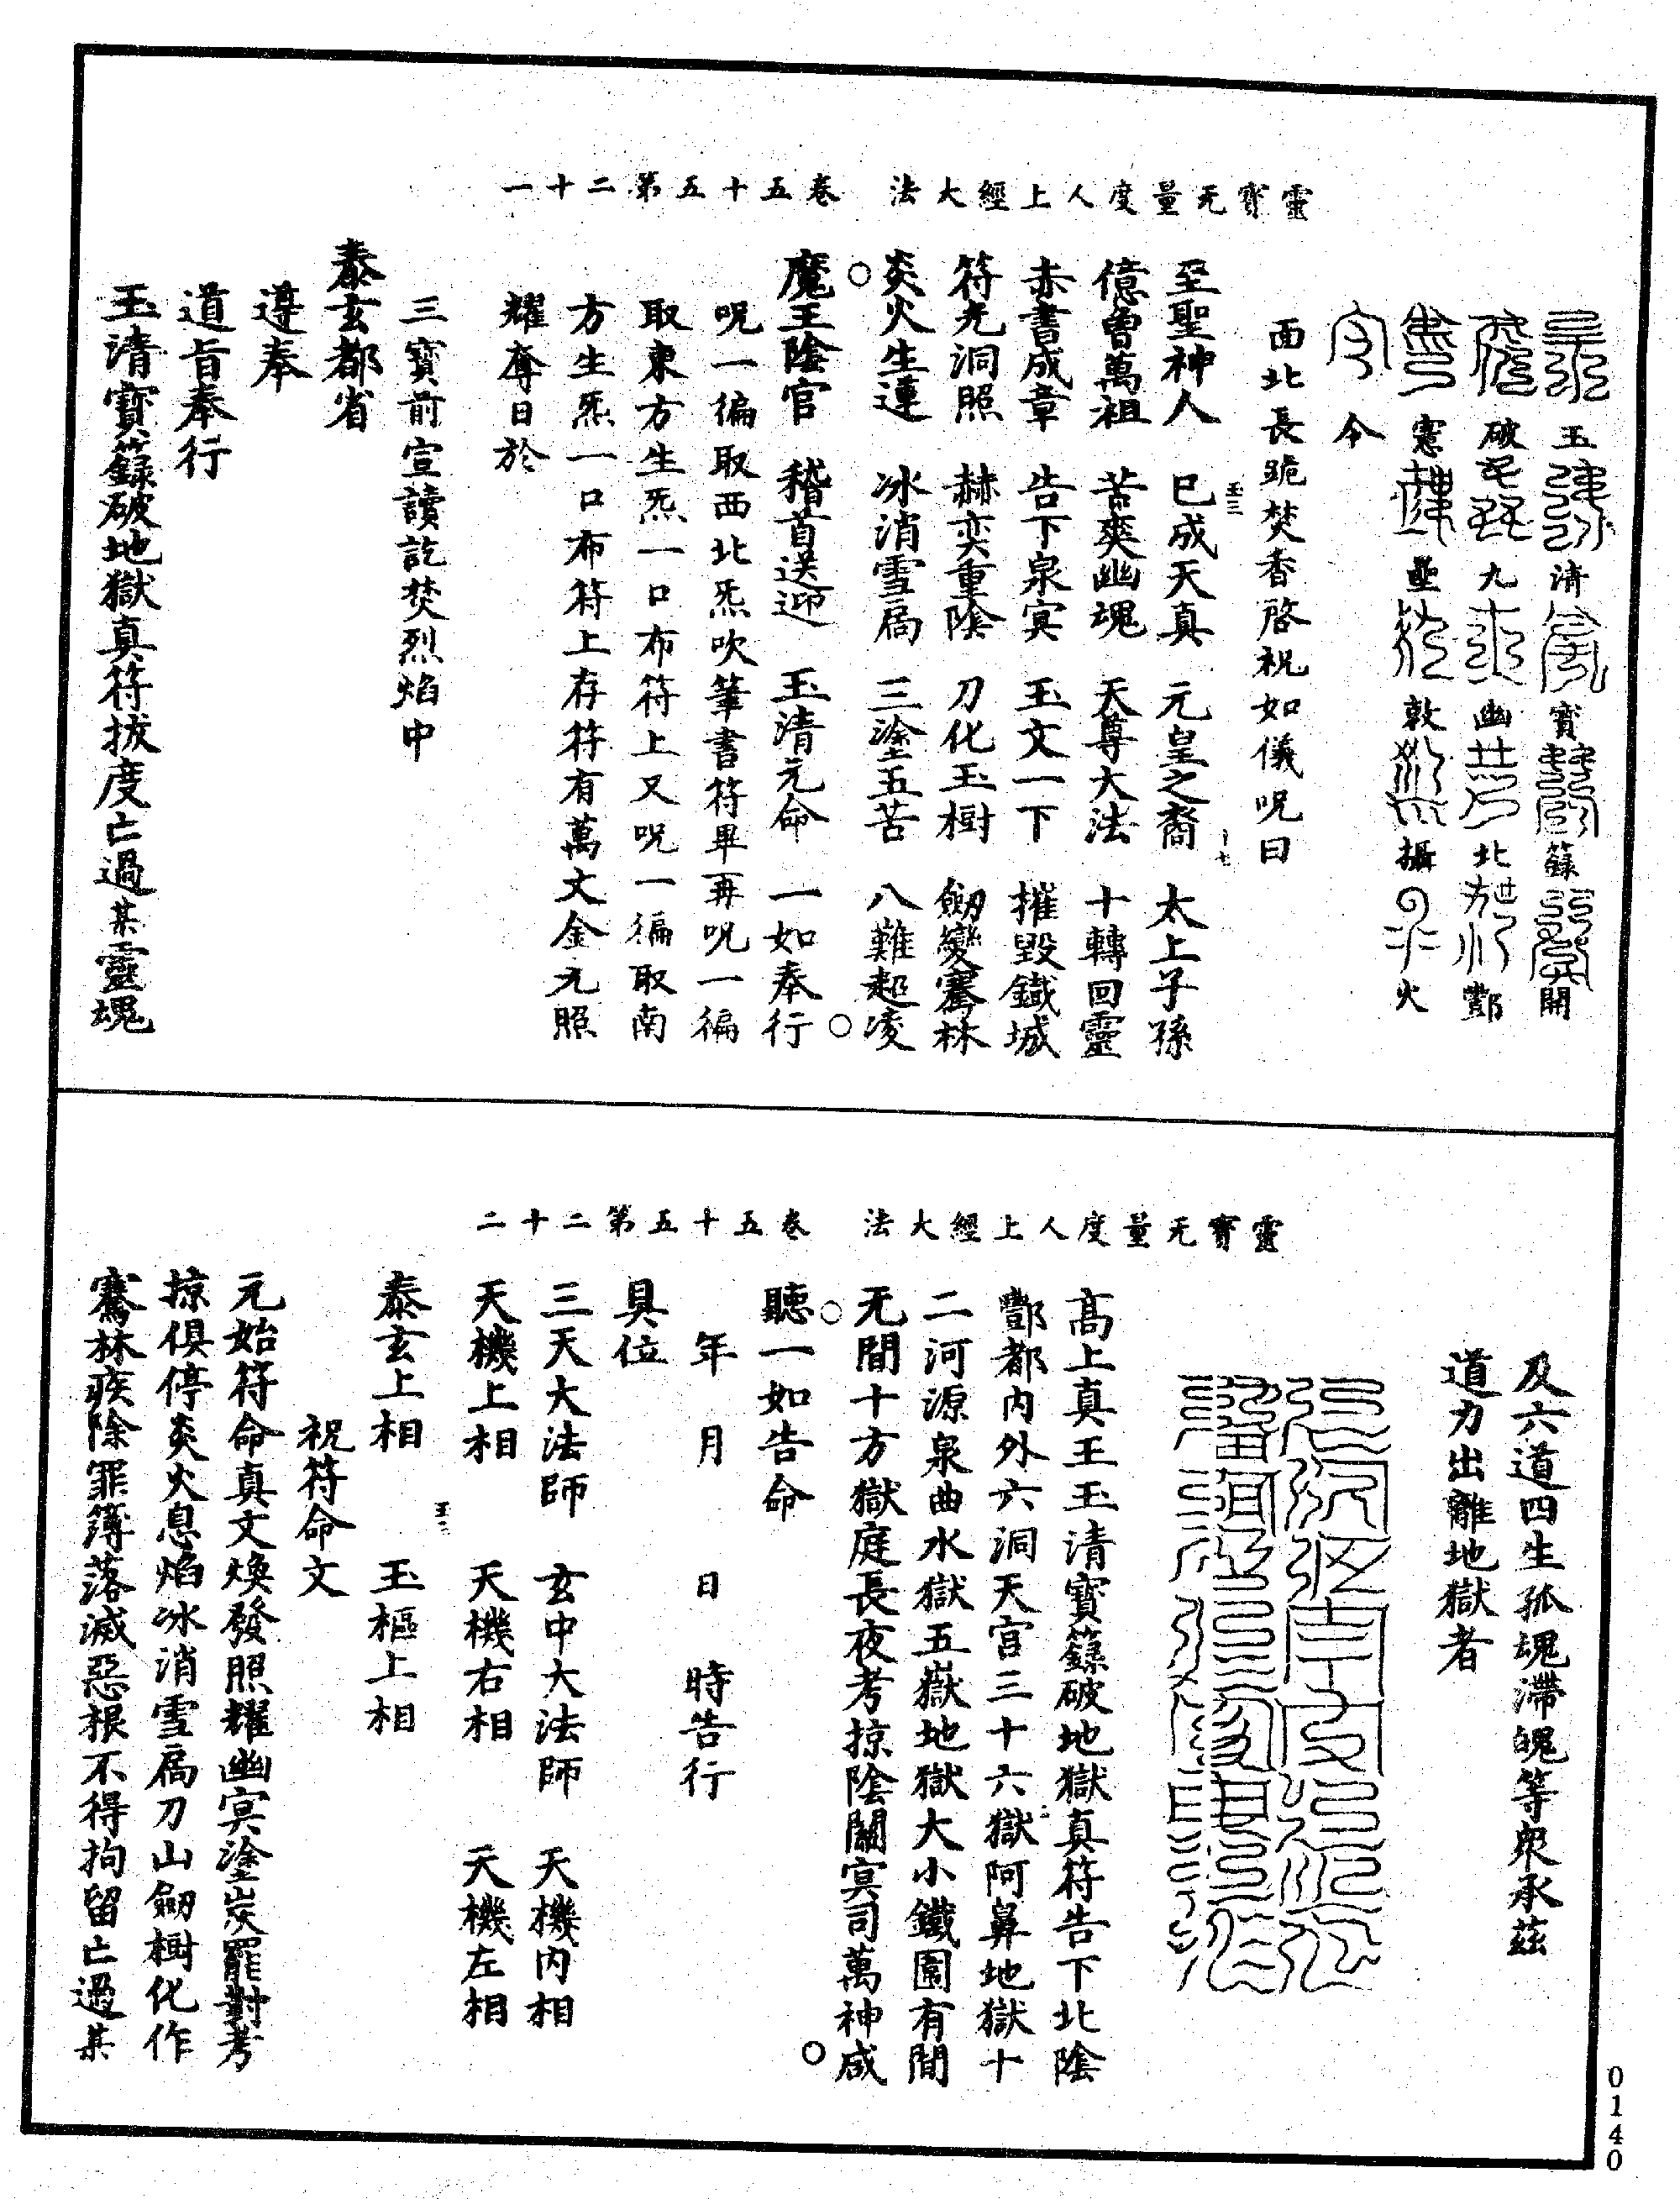 靈寶无量度人上經大法　卷五十五第二十一
玉　清　寶　籙　開
破　九　幽　北　酆
憲　　　敦　攝　火
令
面北長跪焚香啓祝如儀呪曰
至聖神人　已成天真　元皇之裔　太上子孫
億曾萬祖　苦爽幽魂　天尊大法　十轉回靈
赤書成章　告下泉冥　玉文一下　摧毀鐵城
符光洞照　赫奕重陰　刀化玉樹　劒變騫林
炎火生蓮　冰消雪扃　三塗五苦　八難超凌
魔王陰官　稽首送迎　玉清元命　一如奉行
呪一徧取西北炁吹筆書符畢再呪一徧
取東方生炁一口布符上又呪一徧取南
方生炁一口布符上存符有萬文金光照
耀奪日於
三寶前宣讀訖焚烈焰中
泰玄都省
遵奉
道旨奉行
玉清寶籙破地獄真符拔度亡過某靈魂
靈寶无量度人上經大法　卷五十五第二十二
及六道四生孤魂滯魄等衆承茲
道力出離地獄者
高上真王玉清寶籙破地獄真符告下北陰
酆都內外六洞天宮三十六獄阿鼻地獄十
二河源泉曲水獄五嶽地獄大小鐵圍有間
无間十方獄庭長夜考掠陰關冥司萬神咸
聽一如告命
年　月　日　時告行
具位
三天大法師　玄中大法師　天機內相
天機上相　天機右相　天機左相
泰玄上相　玉樞上相
祝符命文
元始符命真文煥發照耀幽冥塗炭罷對考
掠俱停炎火息焰冰消雪扃刀山劒樹化作
騫林疾除罪簿落滅惡根不得拘留亡過某
0140